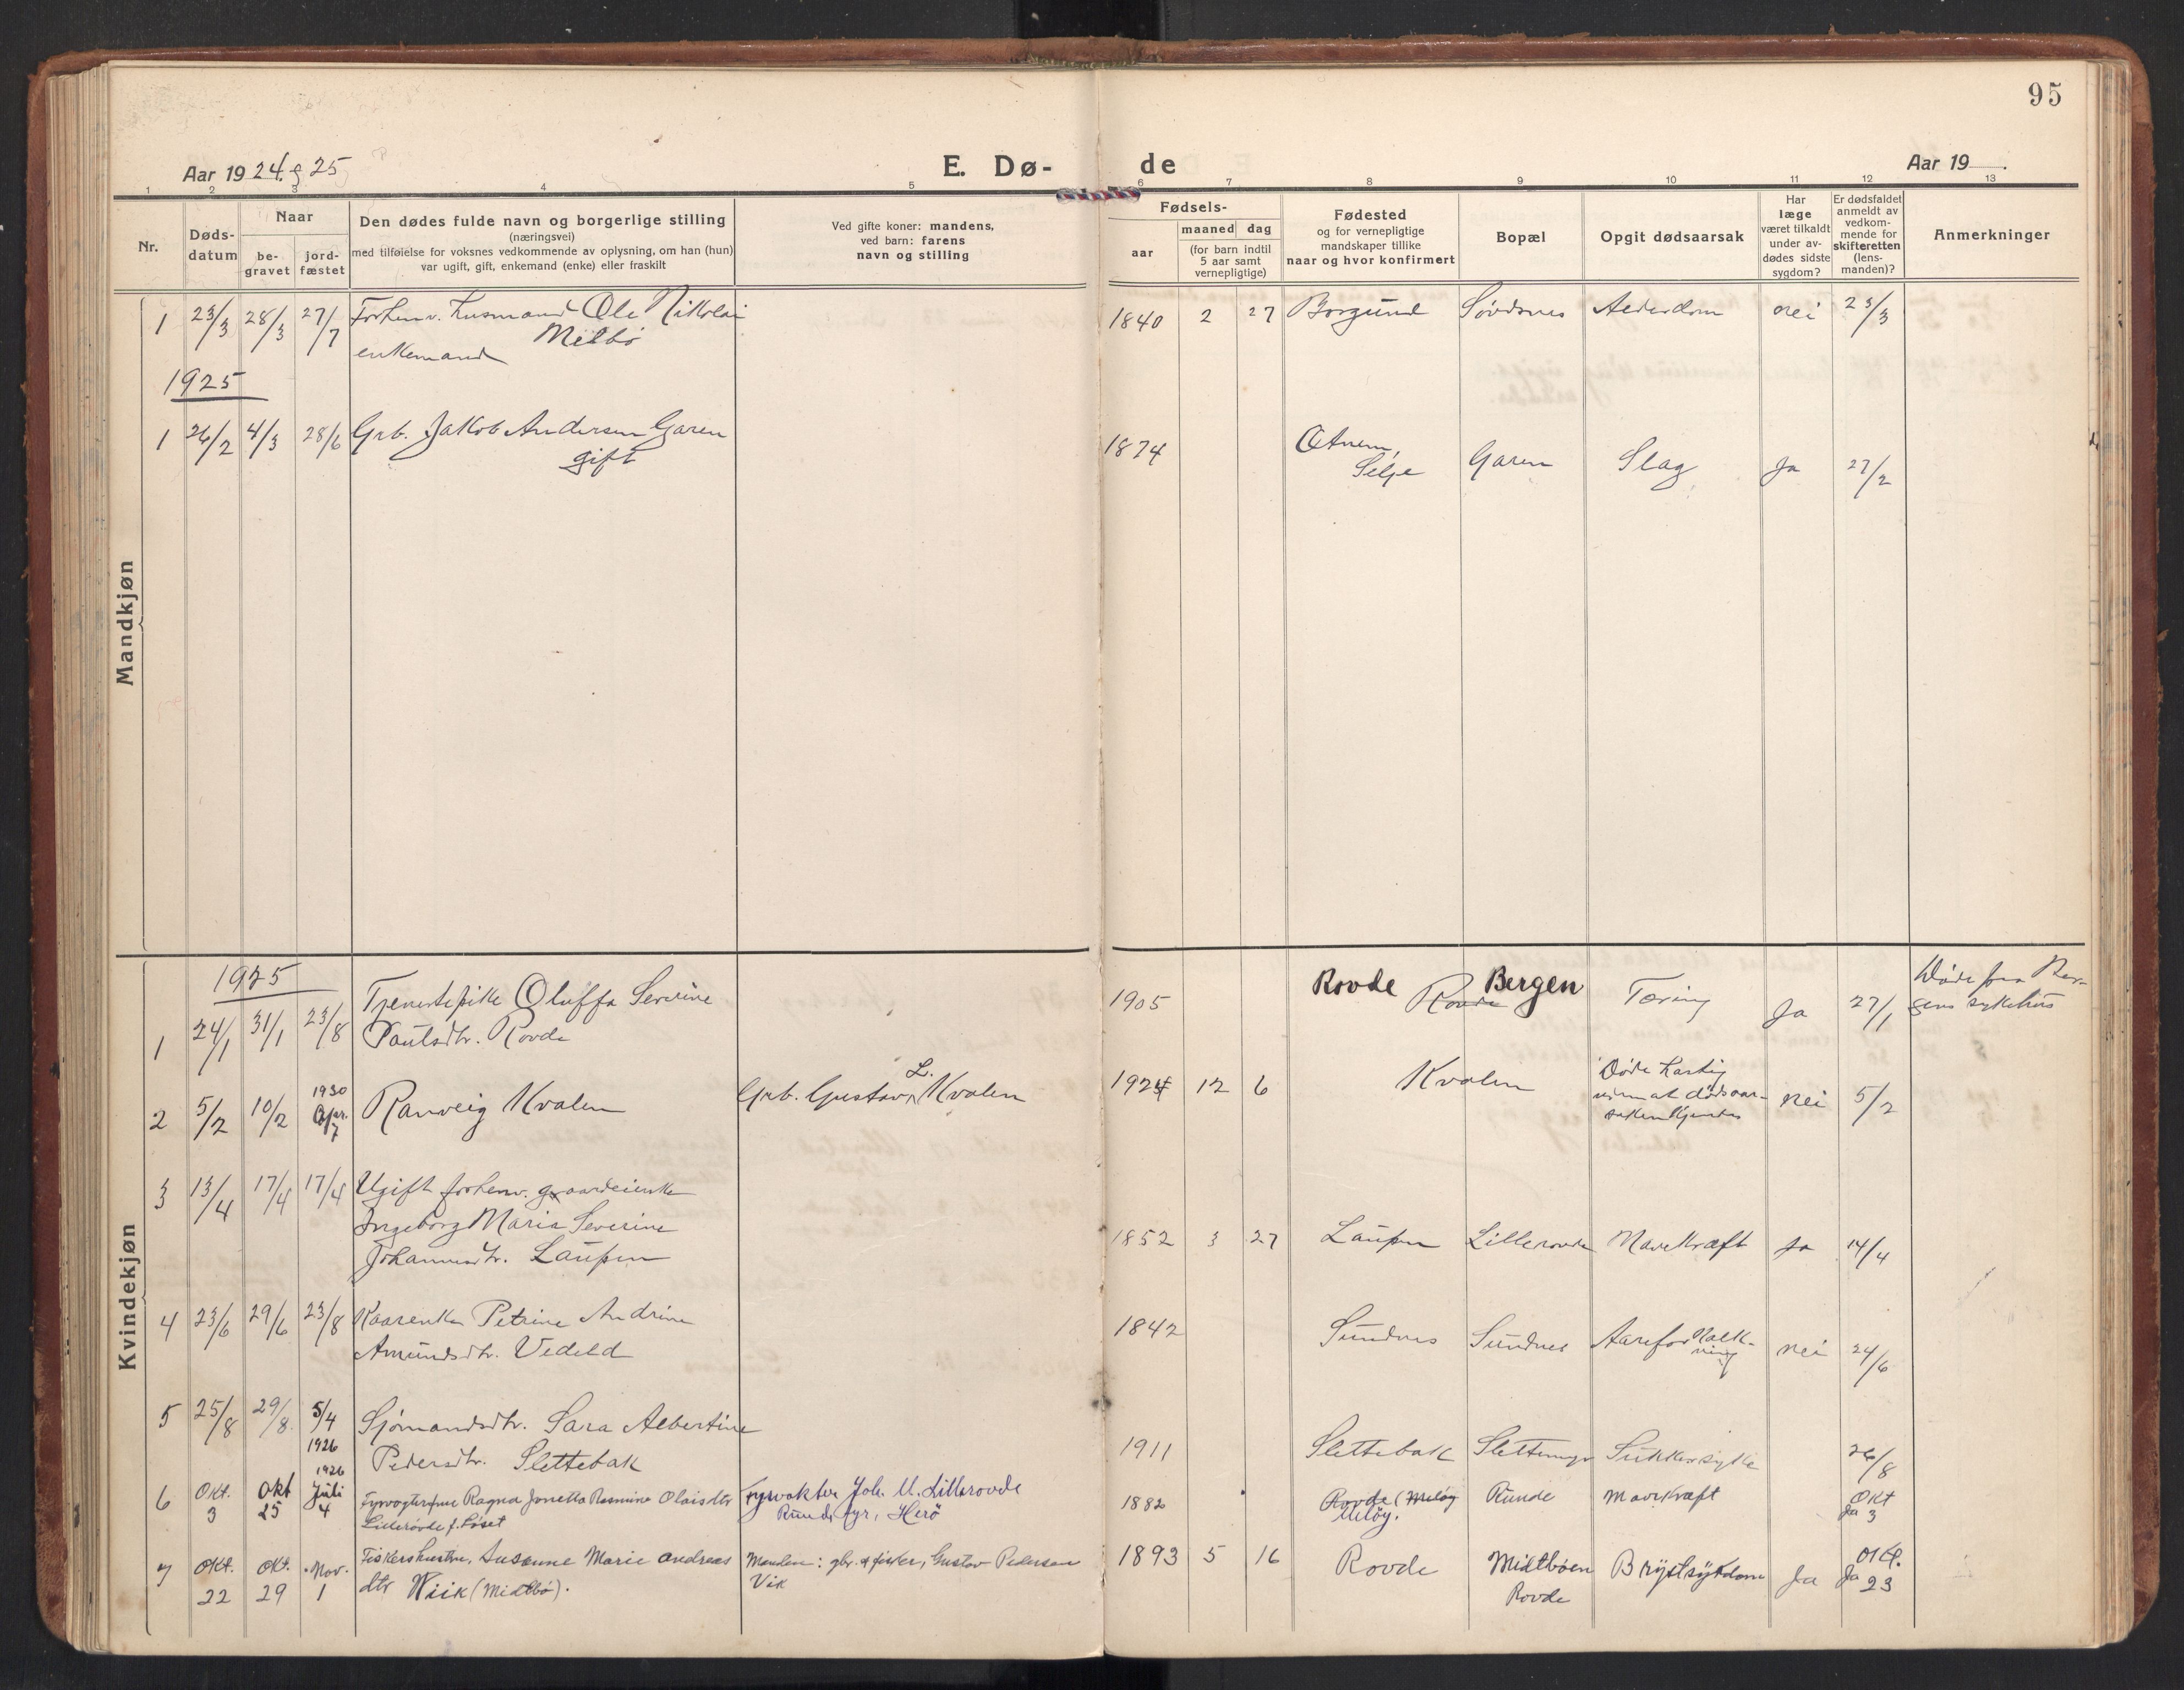 95
Aar 1924 & 25
E. Dø-
de
Aar 19
1 2 3 4 5 6 7 8 9 10 11 12 13
Nr.
Døds-
datum
Naar
be-
gravet
jord-
fæstet
Den dødes fulde navn og borgerlige stilling
(næringsvei)
med tilføielse for voksnes vedkommende av oplysning, om han (hun)
var ugift, gift, enkemand (enke) eller fraskilt
Ved gifte koner: mandens,
ved barn: farens
navn og stilling
Fødsels-
aar
maaned dag
(for barn indtil
5 aar samt
vernepligtige)
Fødested
og for vernepligtige
mandskaper tillike
naar og hvor konfirmert
Bopæl
Opgit dødsaarsak
Har
læge
været tilkaldt
under av-
dødes sidste
sygdom?
Er dødsfaldet
anmeldt av
vedkom-
mende for
skifteretten
(lens-
manden)?
Anmerkninger
Mandkjøn
1 23/3 28/3 27/7 Forhenv. husmand Ole Nikolai 1840 2 27 Borgund Søvdsnes Alderdom nei 23/3
enkemand Melbø
1925
1 26/2 4/3 28/6 Grb. Jakob Andersen Garen 1874 Selje Garen Slag Ja 27/2
gift
Kvindekjøn
1925
1 24/1 31/1 23/8 Tjenestepike Oluffa Severine 1905 Rovde Rovde Bergen Tæring Ja 27/1 Døde paa Ber-
Paulsdtr. Rovde gens sykehus
2 5/2 10/2 1930 Apr. 7 Ranveig Kvalen Grb. Gustav L. Kvalen 1924 12 6 Kvalen Døde hastig
uten at dødsaar-
saken kjendes nei 5/2
3 13/4 17/4 17/4 Ugift forhenv. gaardeierske
Ingeborg Maria Severine
Johannesdtr. Laupen 1852 3 27 Laupen Lillerovde Mavekræft Ja 14/4
4 23/6 29/6 23/8 Kaarenke Petrine Andrine 1842 Sundnes Sundnes Aareforkalk-
ning nei 24/6
Amundsdtr. Vedeld
5 25/8 29/8 5/4 1926 Sjømandsdtr. Sara Albertine
Pedersdtr. Slettebak 1911 Slettebak Sukkersyke 26/8
6 Okt. 3 Okt 25 1926 Juli 4 Fyrvogterfrue Ragna Jonetta Rasmine Olaisdtr
Lillerovde f. Løset Fyrvokter Joh. M. Lillerovde
Runde fyr, Herø 1882 Rovde (Meløy
Meløy. Runde Mavekræft Ja Okt 3
7 Okt. 22 Okt. 29 Nov. 1 Fiskershustru, Susanne Marie Andreas
dtr Wiik (Midtbø). Manden: gbr. & fisker, Gustav Pedersen
Vik 1893 5 16 Rovde Midtbøen
Rovde Brystsykdom Ja Ja Okt. 23